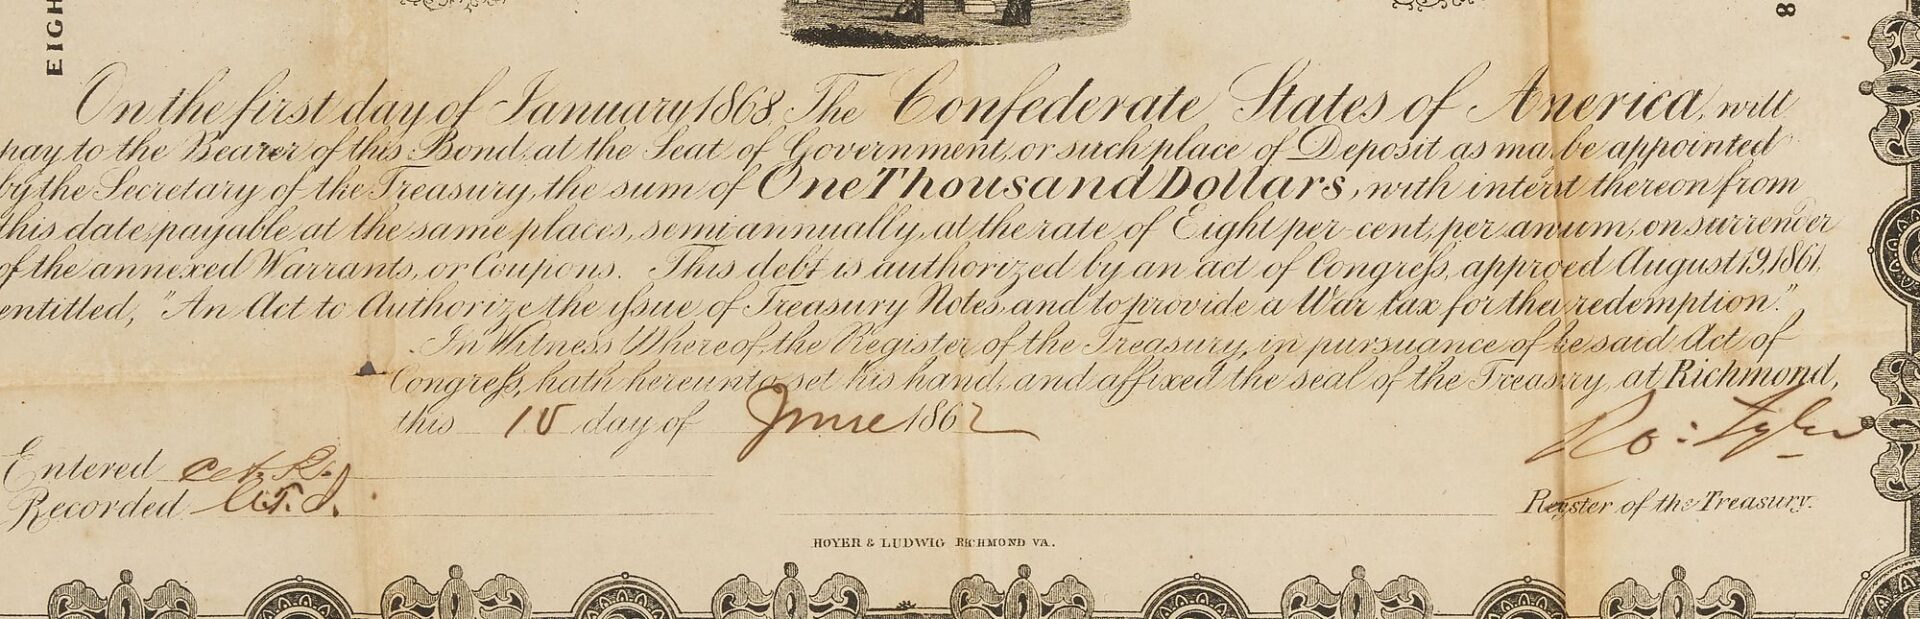 EIGH
8
On the first day of January 1868, The Confederate States of America, will
pay to the Bearer of this Bond, at the Seat of Government, or such place of Deposit as ma be appointed
by the Secretary of the Treasury, the sum of One Thousand Dollars, with interst thereon from
this date, payable at the same places, semiannually, at the rate of Eight per cent, per anum, on surrender
of the annexed Warrants, or Coupons. This debt is authorized by an act of Congress, approed August 19, 1861,
entitled, "An Act to Authorize the issue of Treasury Notes, and to provide a War tax for their redemption."
In Witness Whereof, the Register of the Treasury, in pursuance of he said Act of
Congress, hath hereunto set his hand, and affixed the seal of the Treasury, at Richmond,
this 10 day of June 1862
Ro: Tyler
Entered
Recorded
Register of the Treasury.
HOYER & LUDWIG RICHMOND VA.